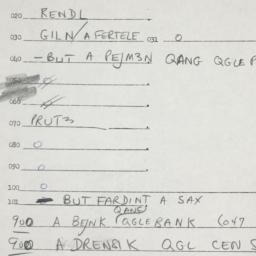 020 RENDL
030 GILN/A FERTELE 031 0
040 -BUT A PEJM3N QANG QGLE P
070 PRUT3
080 0
090 0
100 0
BUT FARDINT A SAX
QANS
900 A BENK PQGLERANK
900 A DRENSIK QGL CEN S